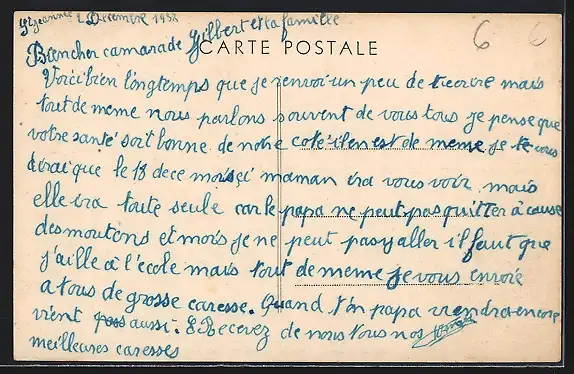 St Jeannie 2 Decembre 1932
Bien cher camarade Gilbert et la famille
CARTE POSTALE
6 6
Voici bien longtemps que je renvoi un peu de t'ecrire mais
tout de meme nous parlons souvent de vous tous je pense que
votre santé soit bonne de notre coté il en est de meme je te vous
dirai que le 18 de ce mois ci maman ira vous voir mais
elle ira toute seule car le papa ne peut pas quitter à cause
des moutons et mois je ne peut pas y aller il faut que
j'aille a l'ecole mais tout de meme je vous envoie
a tous de grosse caresse. Quand ton papa viendra encore
vient aussi. Recevez de nous tous nos
meilleures caresses